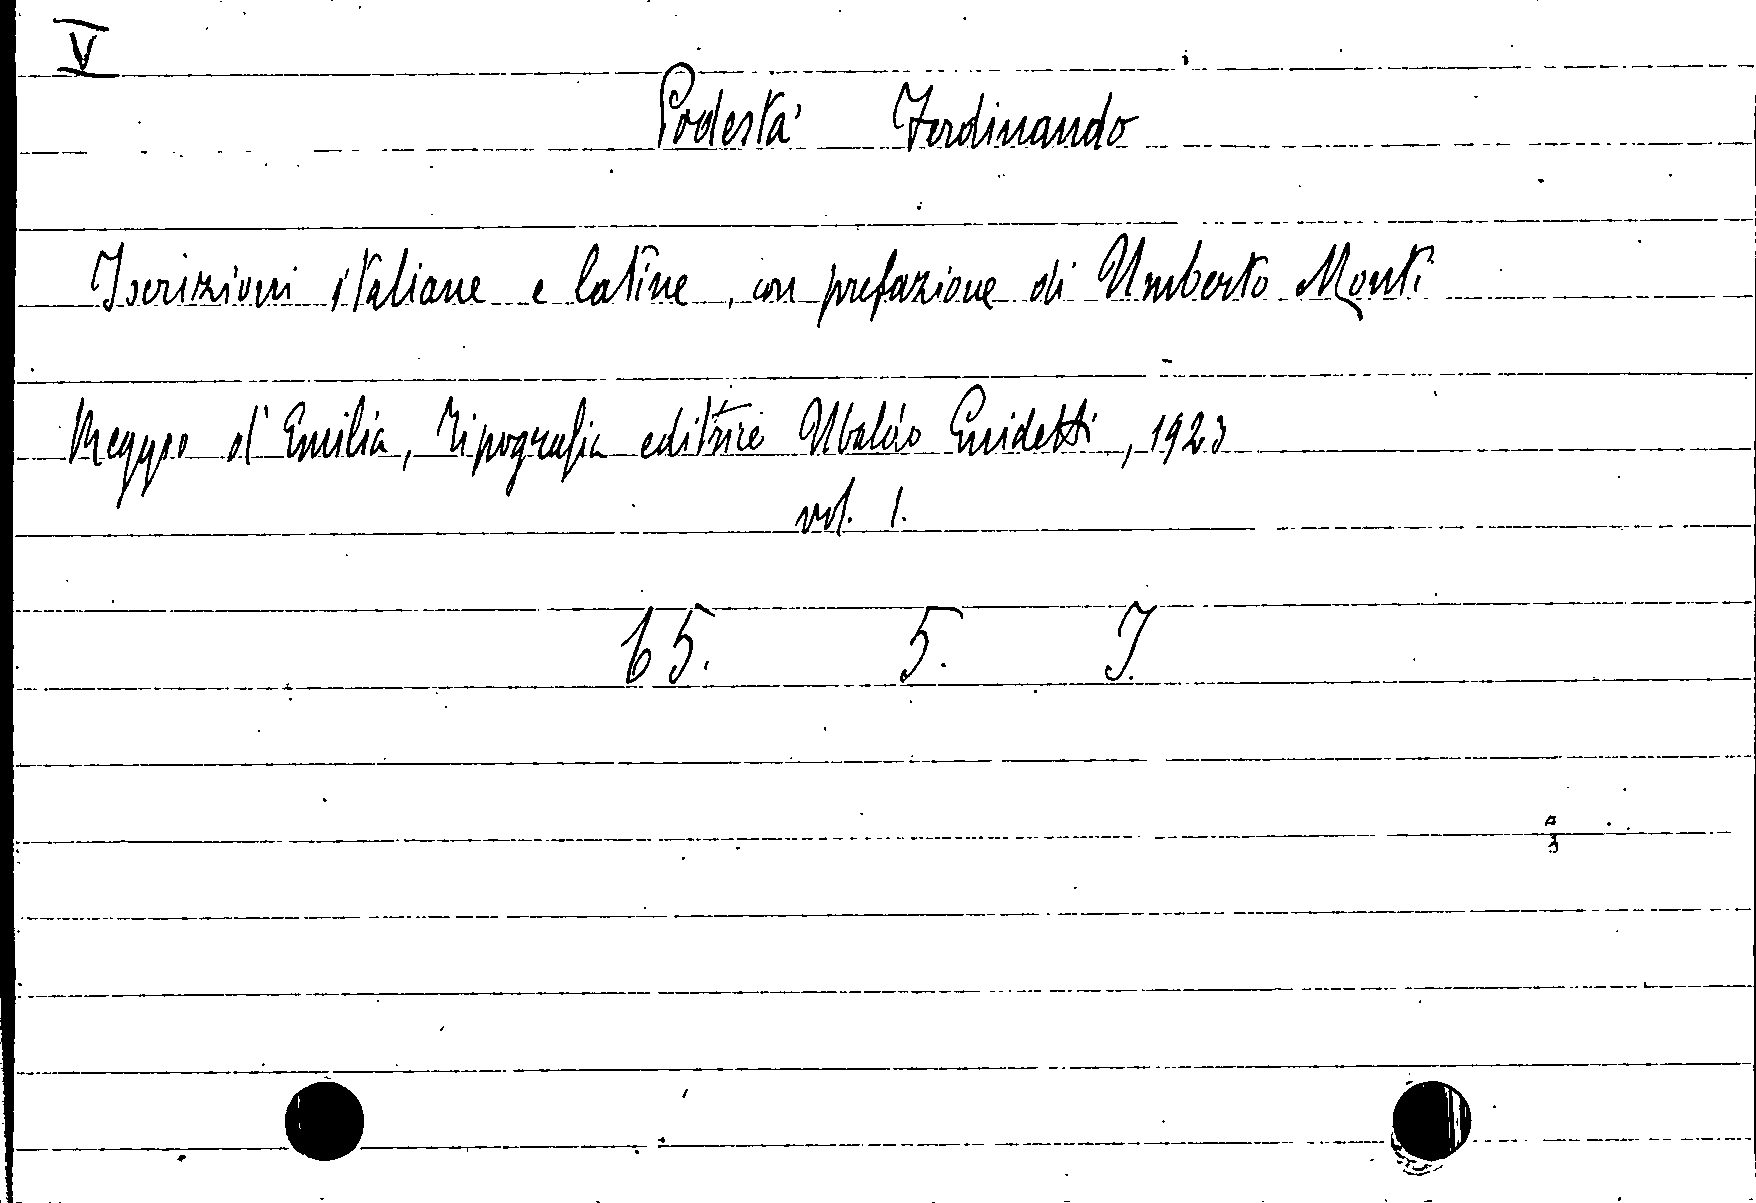 V
Podestà Ferdinando
Iscrizioni italiane e latine, con prefazione di Umberto Monti
Reggio d'Emilia, Tipografia editrice Ubaldo Guidetti, 1923
vol. 1.
65. 5. I.